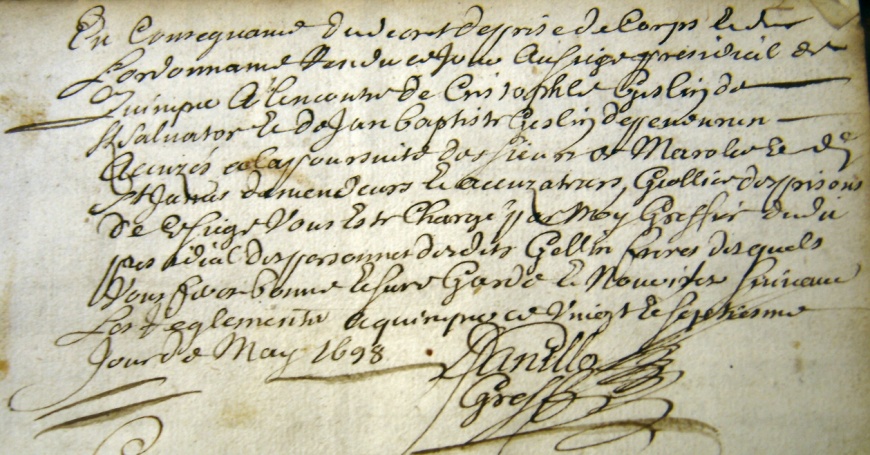 En Consequance du decret de prise de Corps Et de
L'ordonnance Rendu ce Jour Au siege presidial de
Quimper A l'encontre de Cristophle Geslin de
St Salvator Et de Jan baptiste Geslin de
Accuzés a la poursuitte des sieurs de Marolie Et de
St James demendeurs Et accuzateurs, Geollier des prisons
De Ce siege Vous Este Chargé par Moy Greffier dudit
presidial des personnes desdits Gellin freres desquels
Vous ferez bonne Et sure Garde Et Nouriture suivant
Les Reglements a quimper ce Vingt Et septiesme
Jour de May 1698
Greff